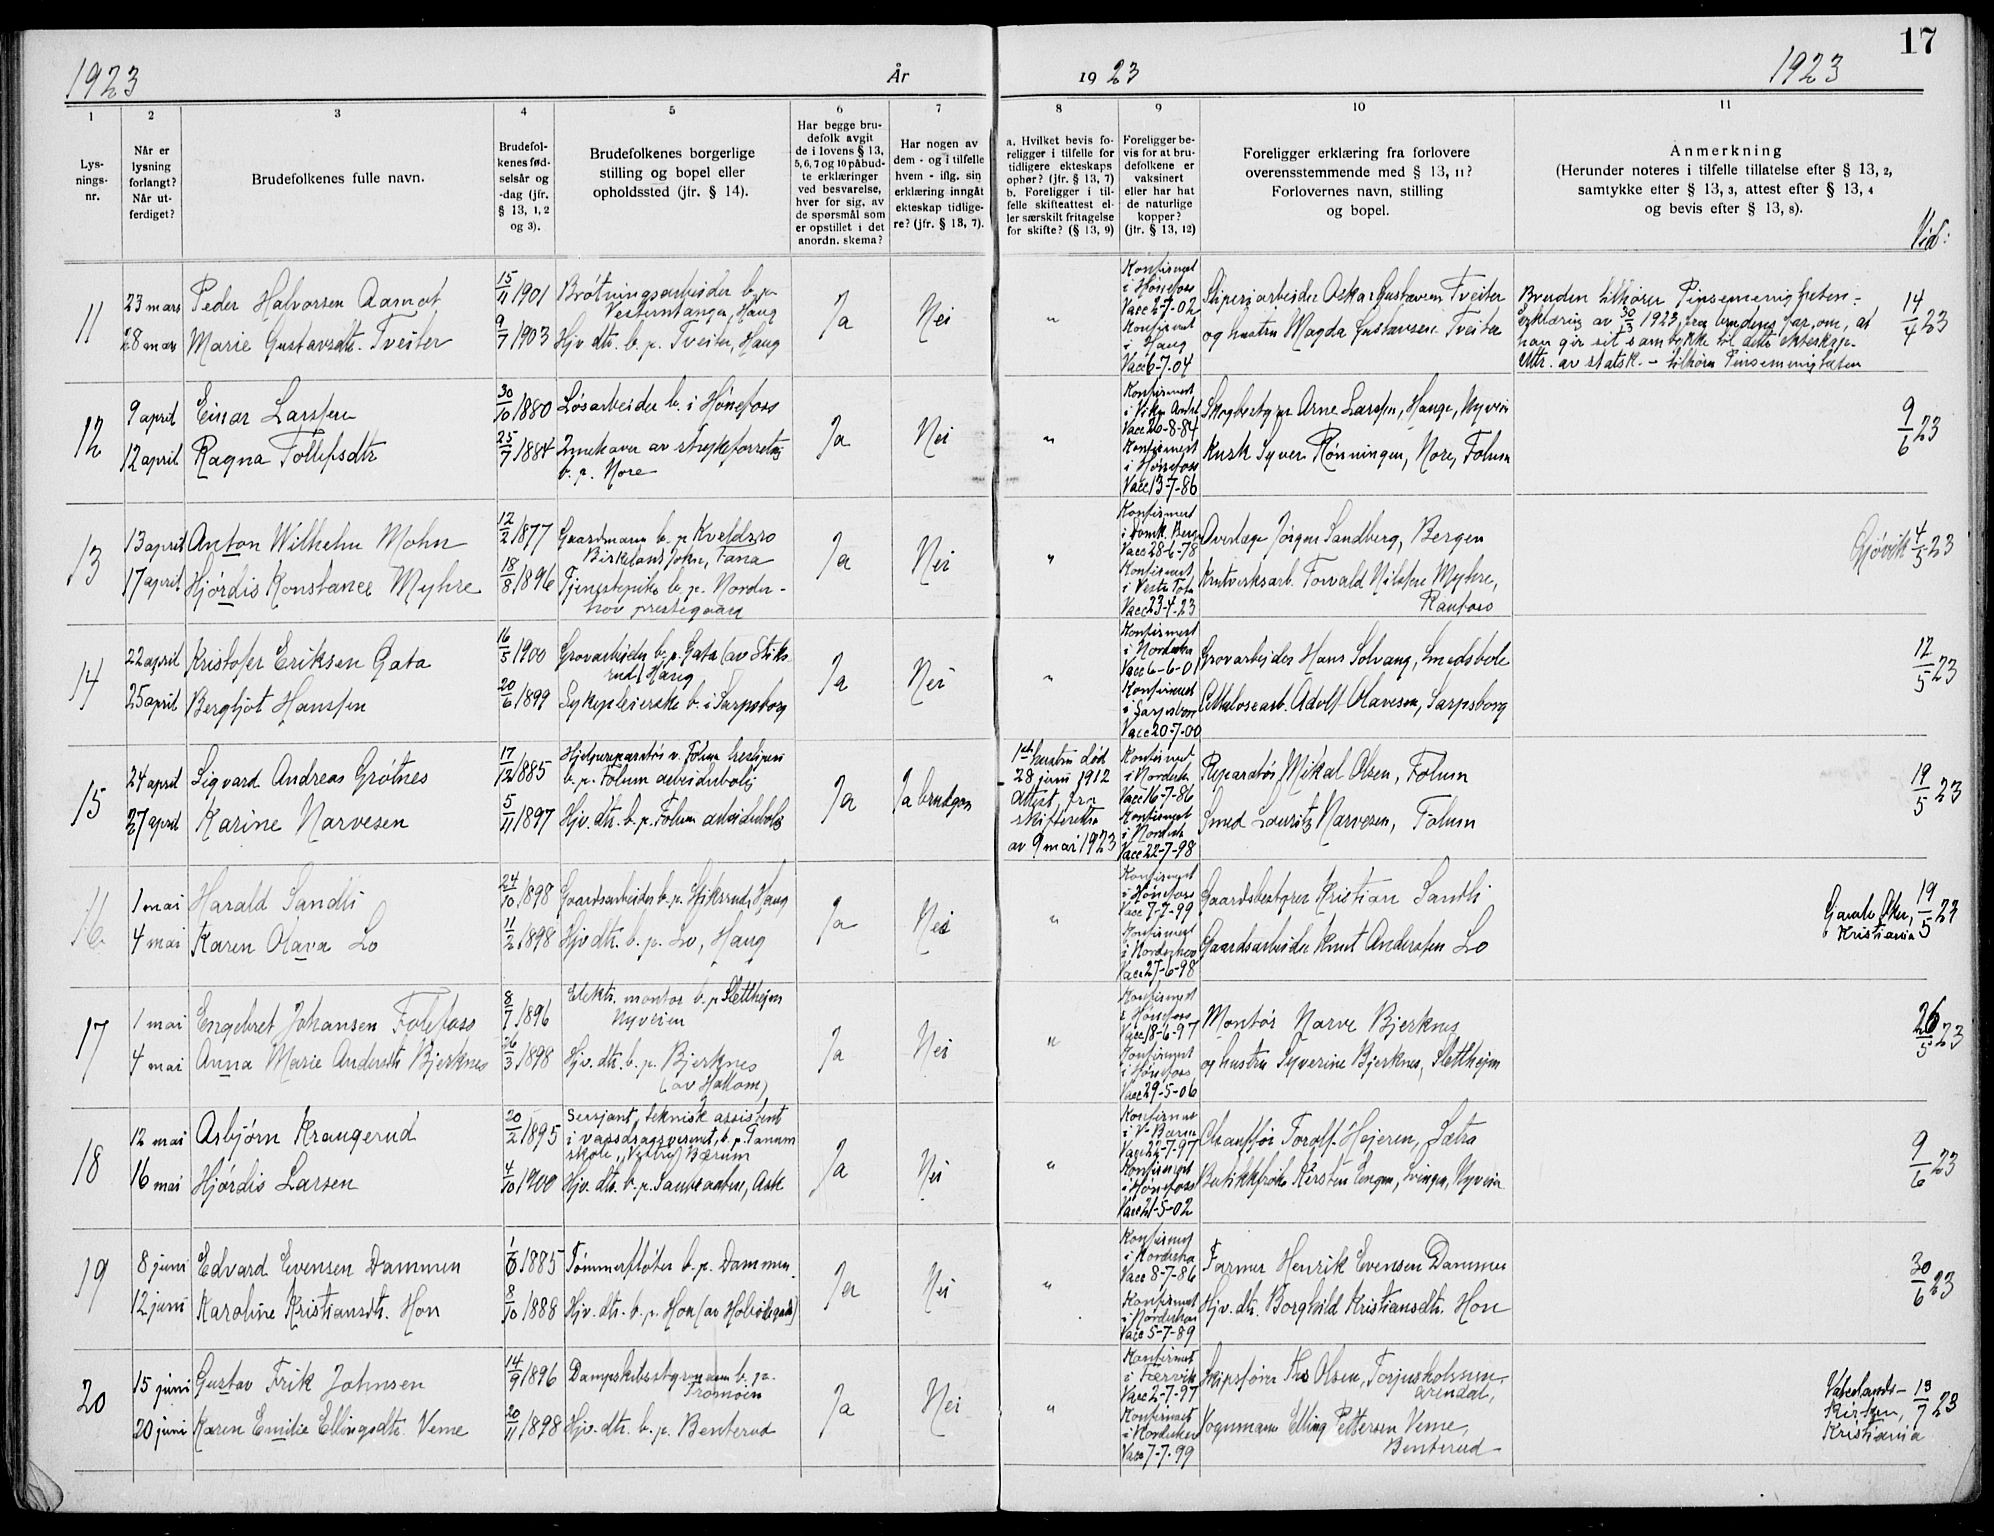 17
1923
År
19 23
1923
1
2
3
4
5
6
7
8
9
10
11
Lys-
nings-
nr.
Når er
lysning
forlangt?
Når ut-
ferdiget?
Brudefolkenes fulle navn.
Brudefol-
kenes fød-
selsår og
-dag (jfr.
§ 13, 1, 2
og 3).
Brudefolkenes borgerlige
stilling og bopel eller
opholdssted (jfr. § 14).
Har begge bru-
defolk avgit
de i lovens § 13,
5, 6, 7 og 10 påbud-
te erklæringer
ved besvarelse,
hver for sig, av
de spørsmål som
er opstillet i det
anordn. skema?
Har nogen av
dem - og i tilfelle
hvem - iflg. sin
erklæring inngått
ekteskap tidlige-
re? (jfr. § 13, 7).
a. Hvilket bevis fo-
religger i tilfelle for
tidligere ekteskaps
ophør? (jfr. § 13, 7)
b. Foreligger i til-
felle skifteattest el-
ler særskilt fritagelse
for skifte? (§ 13, 9)
Foreligger be-
vis for at bru-
defolkene er
vaksinert
eller har hat
de naturlige
kopper?
(jfr. § 13, 12)
Foreligger erklæring fra forlovere
overensstemmende med § 13, 11?
Forlovernes navn, stilling
og bopel.
Anmerkning
(Herunder noteres i tilfelle tillatelse efter § 13, 2,
samtykke efter § 13, 3, attest efter § 13, 4
og bevis efter § 13, 8).
Vid:
11
23 mars
28 mars
Peder Halvorsen Aamot
Marie Gustavsdtr. Tveiter
15/11 1901
9/7 1903
Brøtningsarbeider b. p.
Vesterntangen, Haug
Hjv. dtr. b. p. Tveiter, Haug
Ja
Nei
"
Konfirmert
i Hønefoss
Vacc 2-7-02
Konfirmert
i Haug
Vacc 6-7-04
Sliperiarbeider Oskar Gustavsen Tveiter
og hustru Magda Gustavsen Tveiter
Bruden tilhører Pinsemenigheten -
Erklæring av 30/3 1923 fra brudens far, om, at
han gir sit samtykke til dette ekteskap.
Uttr. av statsk. - tilhører Pinsemenigheten
14/4 23
12
9 april
12 april
Einar Larssen
Ragna Tollefsdtr
30/10 1880
25/7 1884
Løsarbeider b. i Hønefoss
Innehaver av strykeforretng
b. p. Nore
Ja
Nei
"
Konfirmert
i Viker
Vacc 20-8-84
Konfirmert
i Hønefoss
Vacc 13-7-86
Skogbestyrer Arne Larssen, Hauge, Nyveien
Kusk Syver Rønningen, Nore, Folum
9/6 23
13
13 april
17 april
Anton Wilhelm Mohn
Hjørdis Konstance Myhre
12/2 1877
18/8 1896
Gaardmann b. p. Kveldsro
Birkelands, Fana
Tjenestepike b. p. Norder-
hov prestegaard
Ja
Nei
"
Konfirmert
i Domk. Bergen
Vacc 28-6-78
Konfirmert
i Vestre Toten
Vacc 23-4-23
Overlæge Jørgen Sandberg, Bergen
Krutverksarb. Torvald Nilssen Myhre,
Raufoss
Gjøvik 4/5 23
14
22 april
25 april
Kristofer Eriksen Gata
Bergljot Hanssen
16/5 1900
20/6 1899
Grovarbeider b. p. Gata (av Stiks-
rud) Haug
Sykepleierske b. i Sarpsborg
Ja
Nei
"
Konfirmert
i Norderhov
Vacc 6-6-01
Konfirmert
i Sarpsborg
Vacc 20-7-00
Grovarbeider Hans Solvang, Smedsbole
Cellulosearb. Adolf Olavesen, Sarpsborg
12/5 23
15
24 april
27 april
Sigvard Andreas Grøtnes
Karine Narvesen
17/12 1885
5/11 1897
Hjelpereparatør v. Folum tresliperi
b. p. Folum arbeiderbolig
Hjv. dtr. b. p. Folum arbeiderbolig
Ja
Ja brudgom
1ste hustru død
28 juni 1912
Attest fra
skifteretten
av 9 mai 1923
Konfirmert
i Norderhov
Vacc 16-7-86
Konfirmert
i Norderh
Vacc 22-7-98
Reparatør Mikal Olsen, Folum
Smed Lauritz Narvesen, Folum
19/5 23
16
1 mai
4 mai
Harald Sandli
Karen Olava Lo
24/10 1898
11/2 1898
Gaardsarbeider b. p. Stiksrud, Haug
Hjv dtr. b. p. Lo, Haug
Ja
Nei
"
Konfirmert
i Hønefoss
Vacc 7-7-99
Konfirmert
i Norderhov
Vacc 27-6-98
Gaardsbestyrer Kristian Sandli
Gaardsarbeider Knut Anderssen Lo
Gamle Aker,
Kristiania
19/5 23
17
1 mai
4 mai
Engebret Johansen Follefoss
Anna Marie Andersdtr Bjerknes
8/7 1896
26/3 1898
Elektr. montør b. p. Slettheim
Nyveien
Hjv. dtr. b. p. Bjerknes
(av Hallom)
Ja
Nei
"
Konfirmert
i Hønefoss
Vacc 18-6-97
Konfirmert
i Hønefoss
Vacc 29-5-06
Montør Narve Bjerknes
og hustru Syverine Bjerknes, Slettheim
26/5 23
18
12 mai
16 mai
Asbjørn Kraugerud
Hjørdis Larsen
20/2 1895
4/10 1900
Sersjant, teknisk assistent
i vassdragsvesenet, b. p. Tanum
skole, Vestre Bærum
Hjv. dtr. b. p. Ask
Ja
Nei
"
Konfirmert
i V. Bærum
Vacc 22-7-97
Konfirmert
i Hønefoss
Vacc 21-5-02
Chauffør Toralf Hejeren, Sætra
Butikkfrøken Kersten Engen, Svingen, Nyveien
9/6 23
19
8 juni
12 juni
Edvard Evensen Dammen
Karoline Kristiansdtr. Hon
1885
8/10 1888
Tømmerfløter b. p. Dammen
Hjv. dtr. b. p. Hon
Ja
Nei
"
Konfirmert
i Norderhov
Vacc 8-7-86
Konfirmert
i Norderhov
Vacc 5-7-89
Farmer Henrik Evensen Dammen
Hjv. dtr. Borghild Kristiansdtr. Hon
30/6 23
20
15 juni
20 juni
Gustav Frik Johnsen
Karen Emilie Ellingsdtr. Veme
14/9 1896
20/11 1898
Dampskibsstyrmann b. p.
Tromøen
Hjv. dtr. b. p. Benterud
Ja
Nei
"
Konfirmert
i Færvik
Vacc 2-7-97
Konfirmert
i Norderhov
Vacc 7-7-99
Skipsfører Ths Olsen, Torjusholmen,
Arendal,
Vognmann Elling Pettersen Veme,
Benterud
Vaterlands-
Kirken,
Kristiania
13/7 23